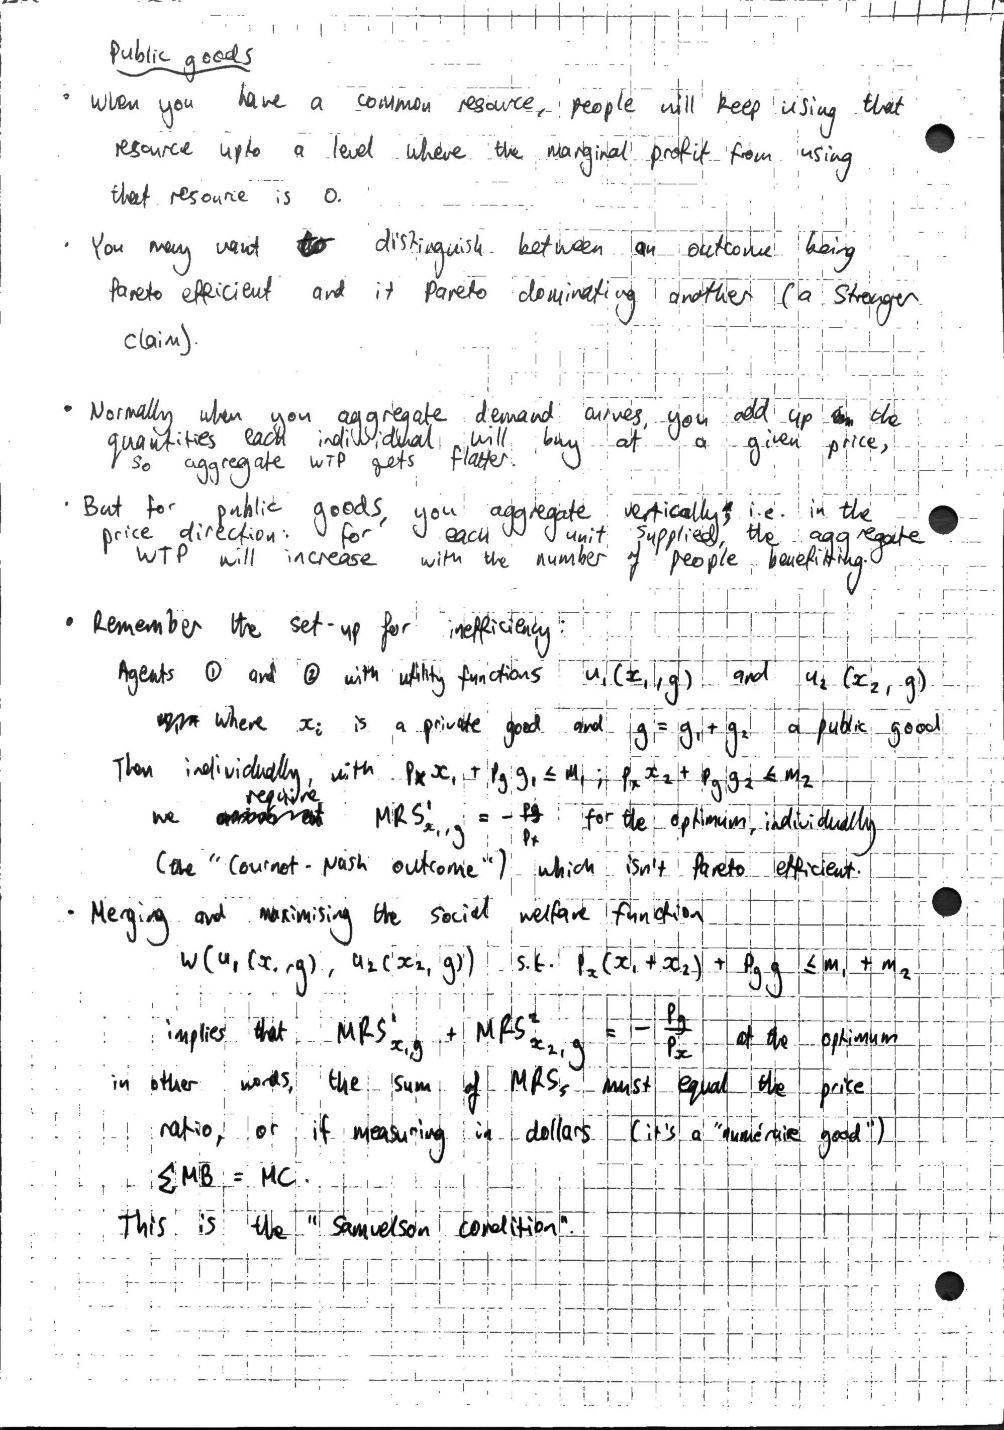 Public goods
• When you have a common resource, people will keep using that
resource upto a level where the marginal profit from using
that resource is 0.
• You may want distinguish between an outcome being
Pareto efficient and it Pareto dominating another (a stronger
claim).
• Normally when you aggregate demand curves, you add up the
quantities each individual will buy at a given price,
so aggregate WTP gets flatter.
• But for public goods, you aggregate vertically, i.e. in the
price direction: for each unit supplied, the aggregate
WTP will increase with the number of people benefitting.
• Remember the set-up for inefficiency:
Agents ① and ② with utility functions u₁(x₁, g) and u₂(x₂, g)
where xᵢ is a private good and g = g₁ + g₂ a public good
Then individually, with pₓx₁ + p_g g₁ ≤ m₁; pₓx₂ + p_g g₂ ≤ m₂
we require MRS¹_{x₁,g} = -p_g/pₓ for the optimum, individually
(the "Cournot-Nash outcome") which isn't Pareto efficient.
• Merging and maximising the social welfare function
W(u₁(x₁, g), u₂(x₂, g)) s.t. pₓ(x₁ + x₂) + p_g g ≤ m₁ + m₂
implies that MRS¹_{x₁,g} + MRS²_{x₂,g} = -p_g/pₓ at the optimum
in other words, the sum of MRSs must equal the price
ratio, or if measuring in dollars (it's a "numéraire good")
ΣMB = MC.
This is the "Samuelson condition".